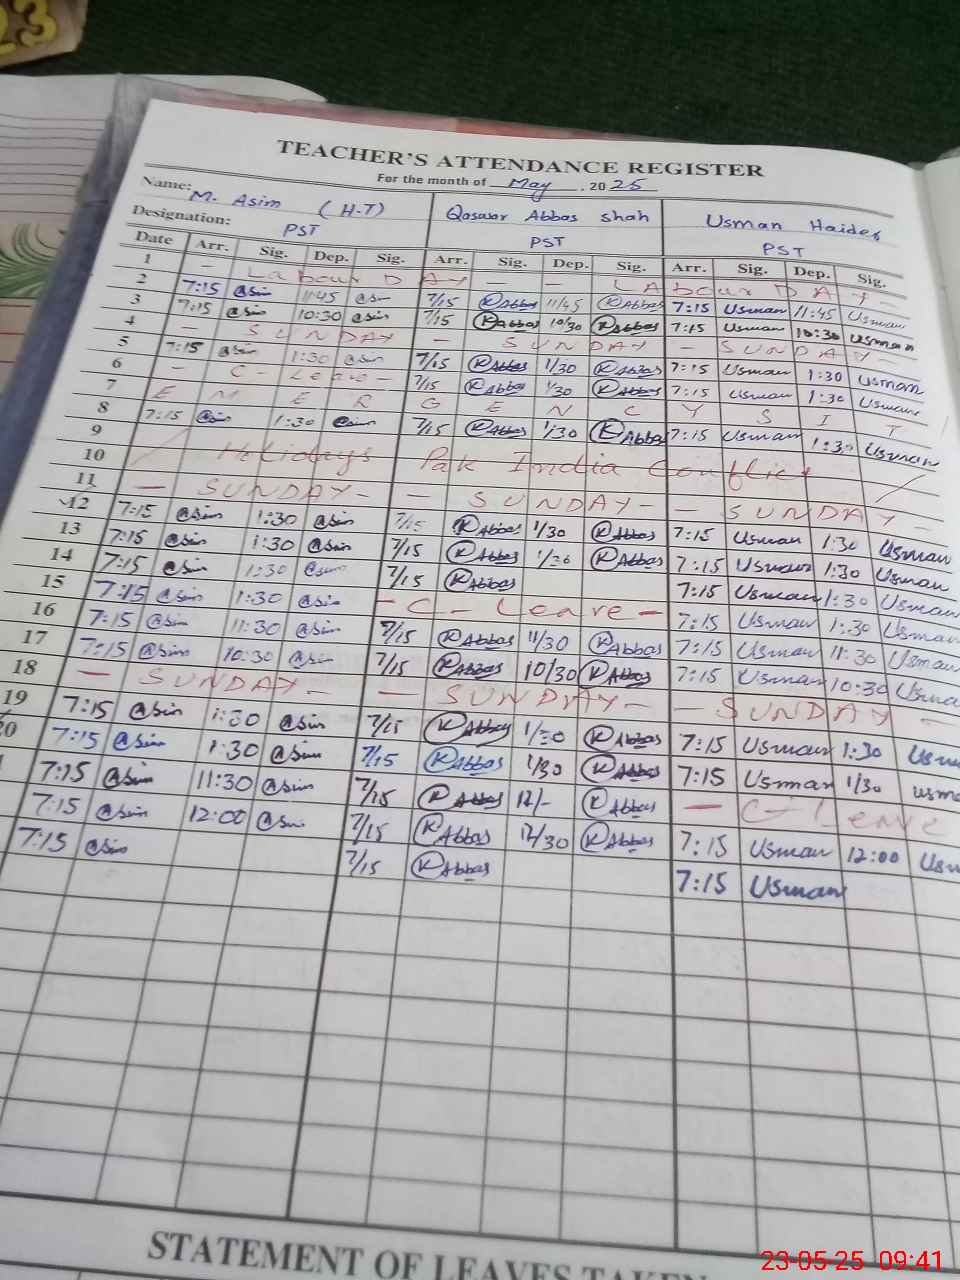 23
TEACHER'S ATTENDANCE REGISTER
For the month of May . 2025
Name: M. Asim (H-T) Qaswar Abbas Shah Usman Haider
Designation: PST PST PST
Date Arr. Sig. Dep. Sig. Arr. Sig. Dep. Sig. Arr. Sig. Dep. Sig.
1 – Labour DAY – – Labour DAY –
2 7:15 @sim 11:45 @sim 7/15 KAbbas 11/45 KAbbas 7:15 Usman 11:45 Usman
3 7:15 @sim 10:30 @sim 7/15 KAbbas 10/30 KAbbas 7:15 Usman 10:30 Usman
4 – SUNDAY – SUNDAY – SUNDAY –
5 7:15 @sim 1:30 @sim 7/15 KAbbas 1/30 KAbbas 7:15 Usman 1:30 Usman
6 – C – Leave – 7/15 KAbbas 1/30 KAbbas 7:15 Usman 1:30 Usman
7 E M E R G E N C Y S I T
8 7:15 @sim 1:30 @sim 7/15 KAbbas 1/30 KAbbas 7:15 Usman 1:30 Usman
9
10 Holidays Pak India Conflict
11 – SUNDAY – – SUNDAY – – SUNDAY –
12 7:15 @sim 1:30 @sim 7/15 KAbbas 1/30 KAbbas 7:15 Usman 1:30 Usman
13 7:15 @sim 1:30 @sim 7/15 KAbbas 1/30 KAbbas 7:15 Usman 1:30 Usman
14 7:15 @sim 1:30 @sim 7/15 KAbbas 7:15 Usman 1:30 Usman
15 7:15 @sim 1:30 @sim – C – Leave – 7:15 Usman 1:30 Usman
16 7:15 @sim 11:30 @sim 7/15 KAbbas 11/30 KAbbas 7:15 Usman 11:30 Usman
17 7:15 @sim 10:30 @sim 7/15 KAbbas 10/30 KAbbas 7:15 Usman 10:30 Usma
18 – SUNDAY – – SUNDAY – – SUNDAY –
19 7:15 @sim 1:30 @sim 7/15 KAbbas 1/30 KAbbas 7:15 Usman 1:30 Usm
20 7:15 @sim 1:30 @sim 7/15 KAbbas 1/30 KAbbas 7:15 Usman 1/30 Usma
7:15 @sim 11:30 @sim 7/15 KAbbas 12/- KAbbas – C – Leave
7:15 @sim 12:00 @sim 7/15 KAbbas 12/30 KAbbas 7:15 Usman 12:00 Usm
7:15 @sim 7/15 KAbbas 7:15 Usman
STATEMENT OF LEAVES TAKEN
23-05-25 09:41